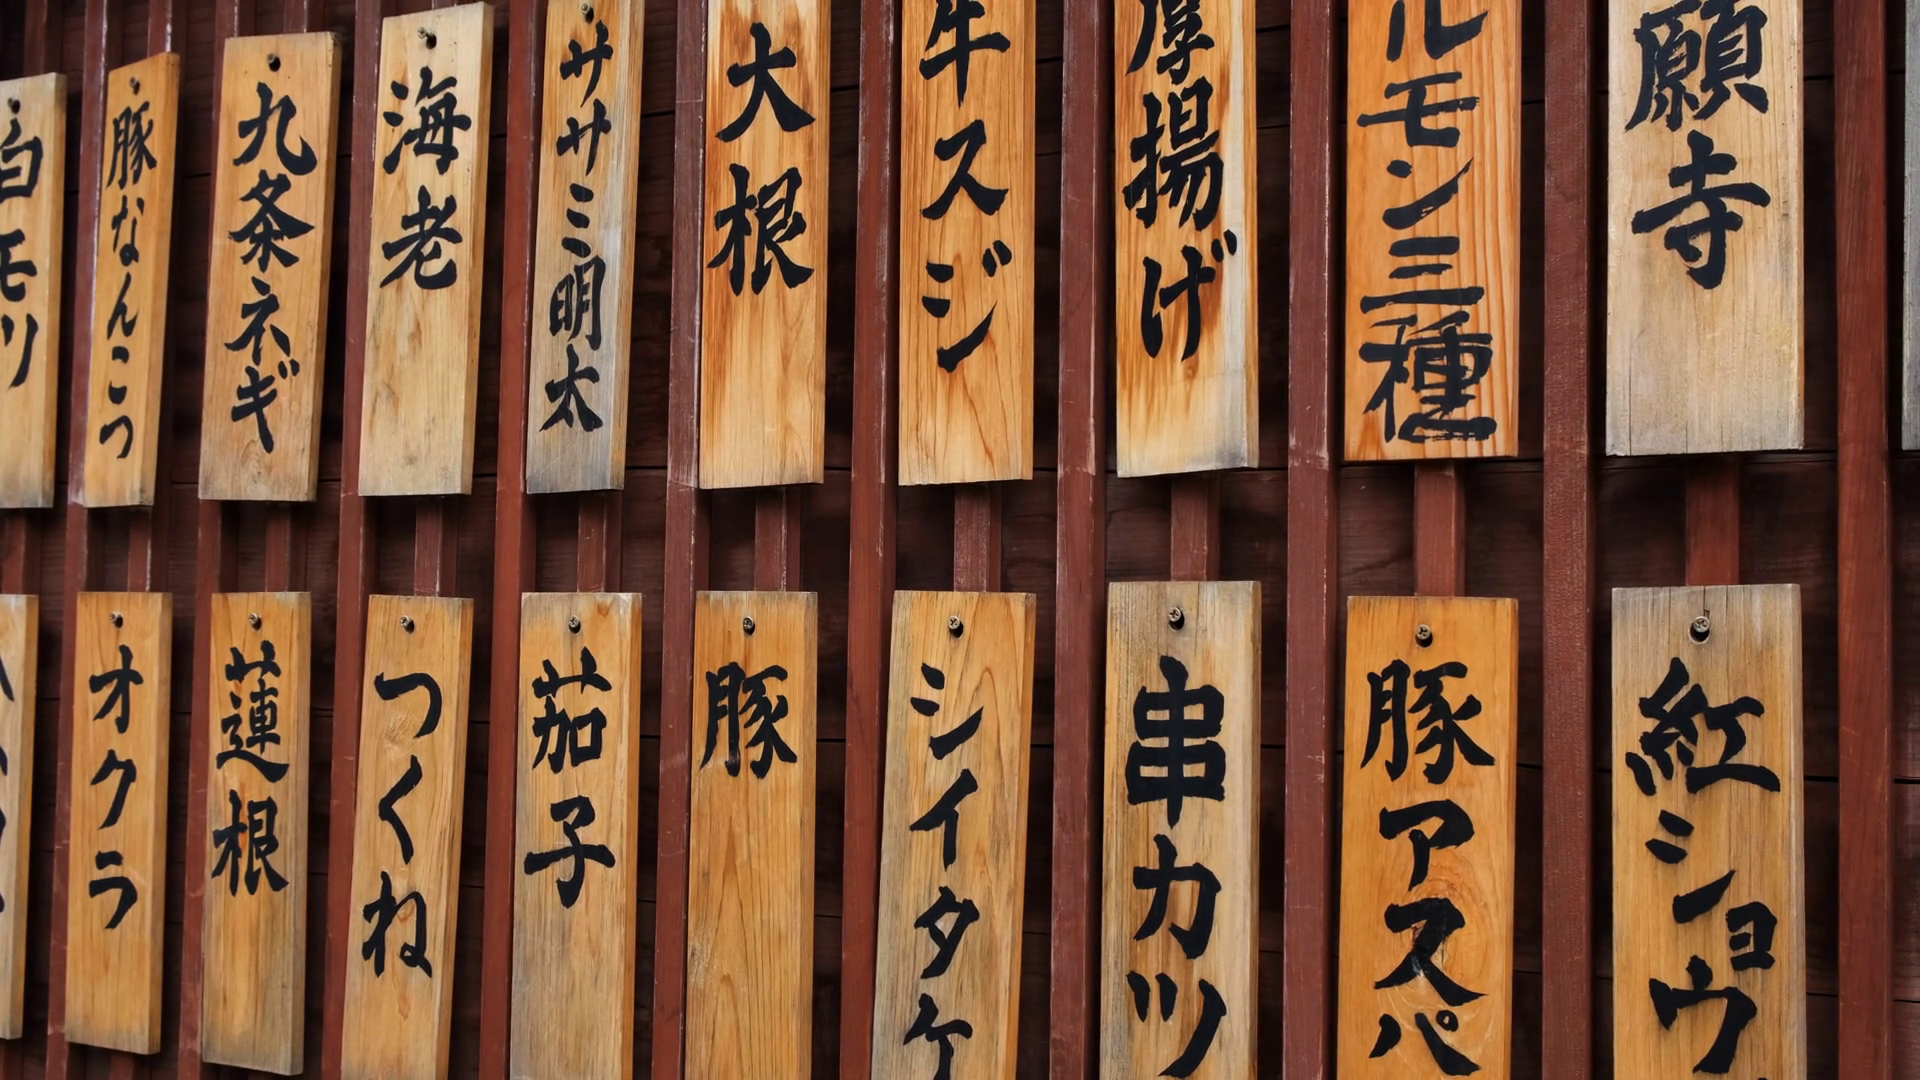 願寺
ルモン三種
厚揚げ
牛スジ
大根
ササミ明太
海老
九条ネギ
豚なんこつ
白モツ
紅ショウ
豚アスパ
串カツ
シイタケ
豚
茄子
つくね
蓮根
オクラ